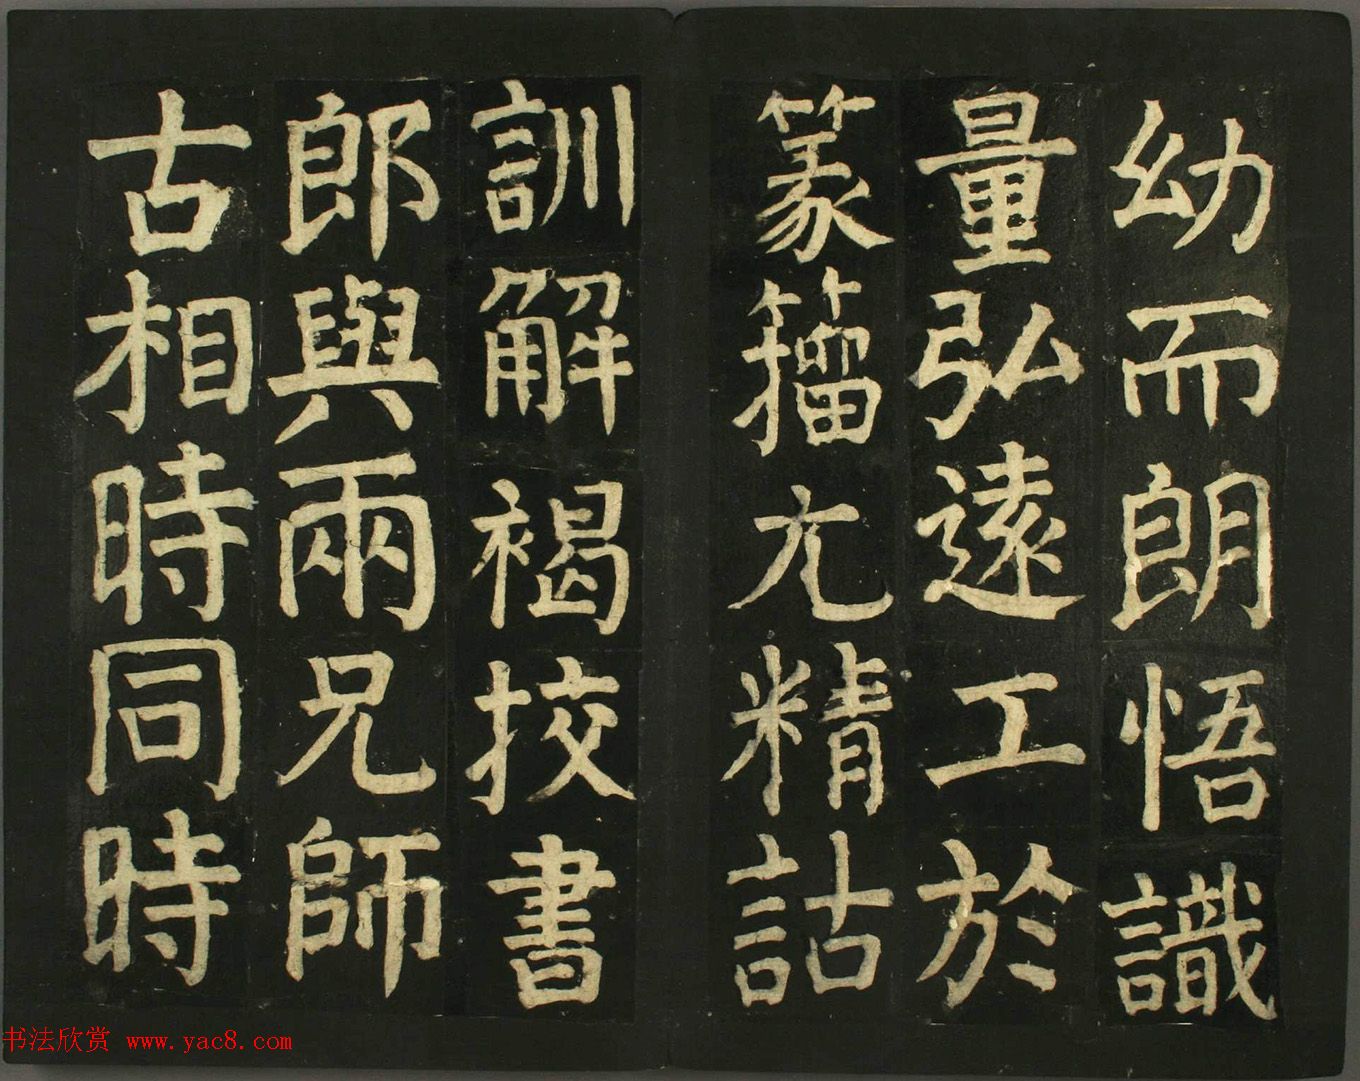 幼而朗悟識
量弘遠工於
篆籀尢精詁
訓解褐挍書
郎與兩兄師
古相時同時
书法欣赏 www.yac8.com